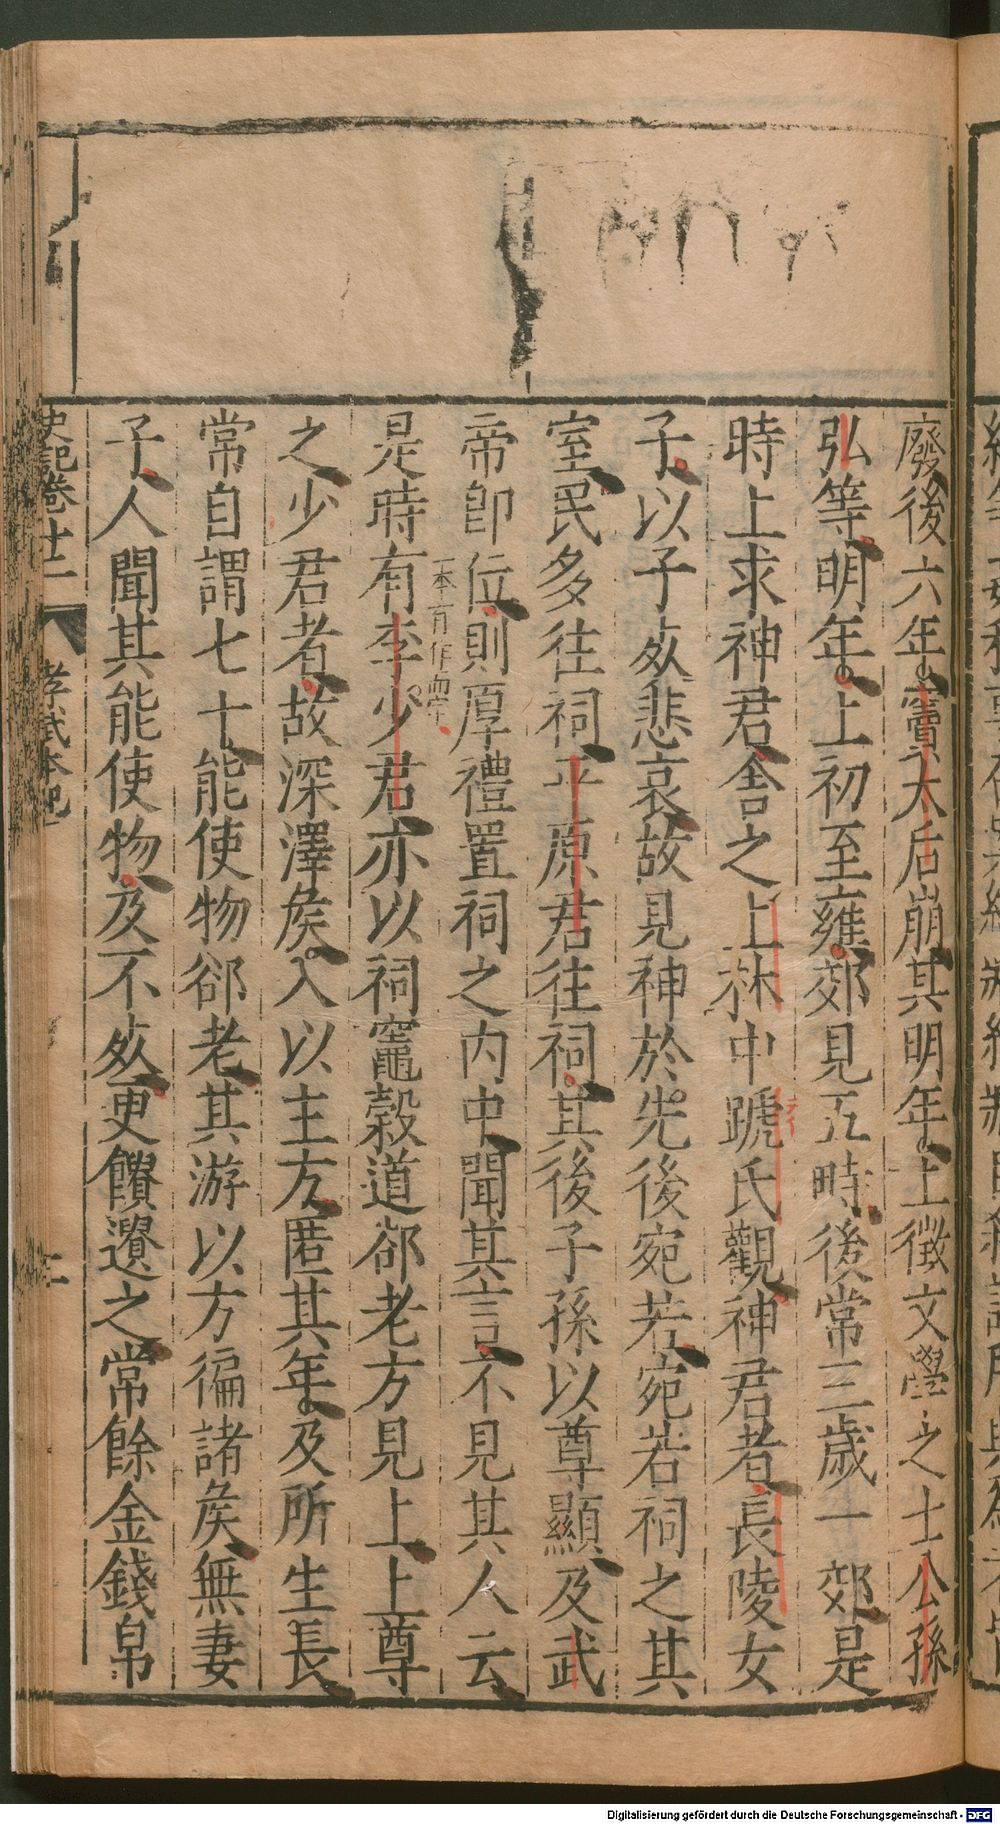 廢後六年竇太后崩其明年上徵文學之士公孫
弘等明年上初至雍郊見五畤後常三歲一郊是
時上求神君舍之上林中蹏氏觀神君者長陵女
子以子死悲哀故見神於先後宛若宛若祠之其
室民多往祠平原君往祠其後子孫以尊顯及武
帝卽位則厚禮置祠之內中聞其言不見其人云
是時有李少君亦以祠竈穀道郤老方見上上尊
之少君者故深澤矦入以主方匿其年及所生長
常自謂七十能使物郤老其游以方徧諸矦無妻
子人聞其能使物及不死更饋遺之常餘金錢帛
史記卷十二 孝武本紀
Digitalisierung gefördert durch die Deutsche Forschungsgemeinschaft - DFG